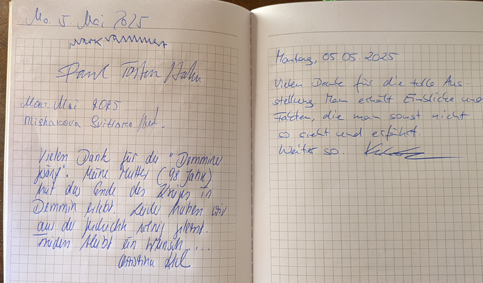 Mo. 5. Mai 2025
Paul Torsten Hahn
Mai 2025
Vielen Dank für die "Demminer
". Meine Mutter (98 Jahre)
hat das Ende des Krieges in
Demmin erlebt. Leider haben wir
aus der wenig gelernt.
Frieden bleibt ein Wunsch ...
Christina
Montag, 05.05.2025
Vielen Dank für die tolle Aus-
stellung. Man erhält Einblicke und
Fakten, die man sonst nicht
so sieht und erfährt.
Weiter so.